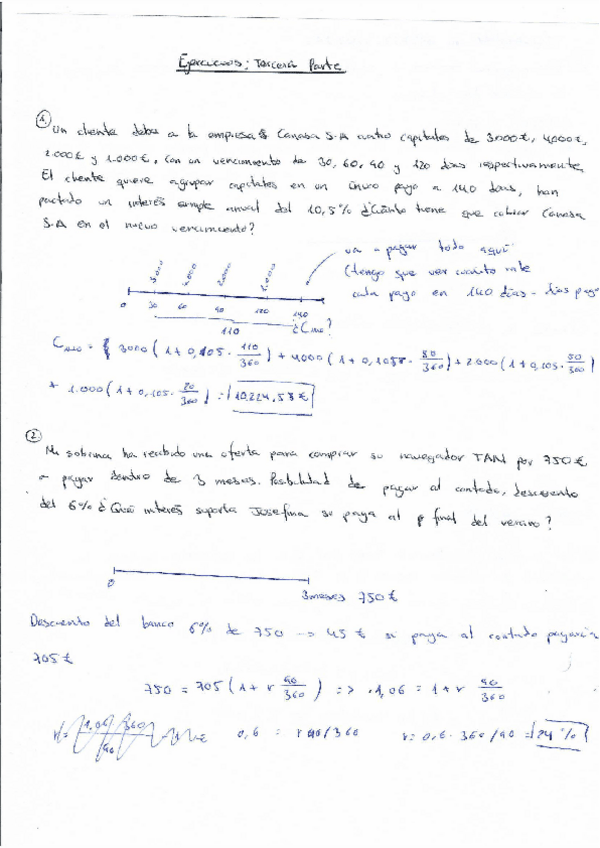 Ejercicios: Tercera Parte
1. Un cliente debe a la empresa Canasa S.A cuatro capitales de 3000€, 4000€,
2.000€ y 1.000€, con un vencimiento de 30, 60, 90 y 120 días respectivamente
El cliente quiere agrupar capitales en un único pago a 140 días, han
pactado un interés simple anual del 10,5% ¿Cuánto tiene que cobrar Canasa
S.A en el nuevo vencimiento?
va a pagar todo aquí
(tengo que ver cuánto vale
cada pago en 140 días - días pago
3000 4000 2000 1.000
0 30 60 90 120 140
110 ¿C140?
C140 = { 3000 (1 + 0,105 · 110/360) + 4000 (1 + 0,105 · 80/360) + 2.000 (1 + 0,105 · 50/360)
+ 1.000 (1 + 0,105 · 20/360) = 10.224,58 €
2. Mi sobrina ha recibido una oferta para comprar su navegador TAN por 750€
a pagar dentro de 3 meses. Posibilidad de pagar al contado, descuento
del 6% ¿Qué interés soporta Josefina si paga al final del verano?
0 3 meses 750€
Descuento del banco 6% de 750 → 45 € si paga al contado pagaría
705 €
750 = 705 (1 + r 90/360) => 1,06 = 1 + r 90/360
0,6 = r 90/360 r = 0,6 · 360/90 = 24%